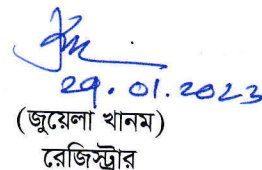 29.01.2023
(জুয়েলা খানম)
রেজিস্ট্রার